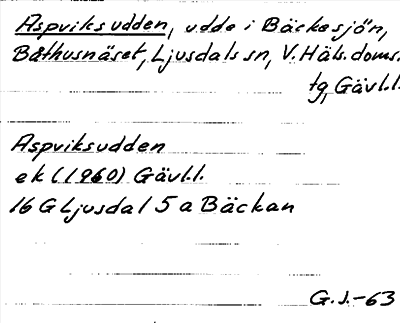 Aspviksudden, udde i Bäckesjön,
Båthusnäset, Ljusdals sn, V. Häls. doms.
tg, Gävl.l.
Aspviksudden
ek (1960) Gävl.l.
16 G Ljusdal 5 a Bäckan
G.J.-63